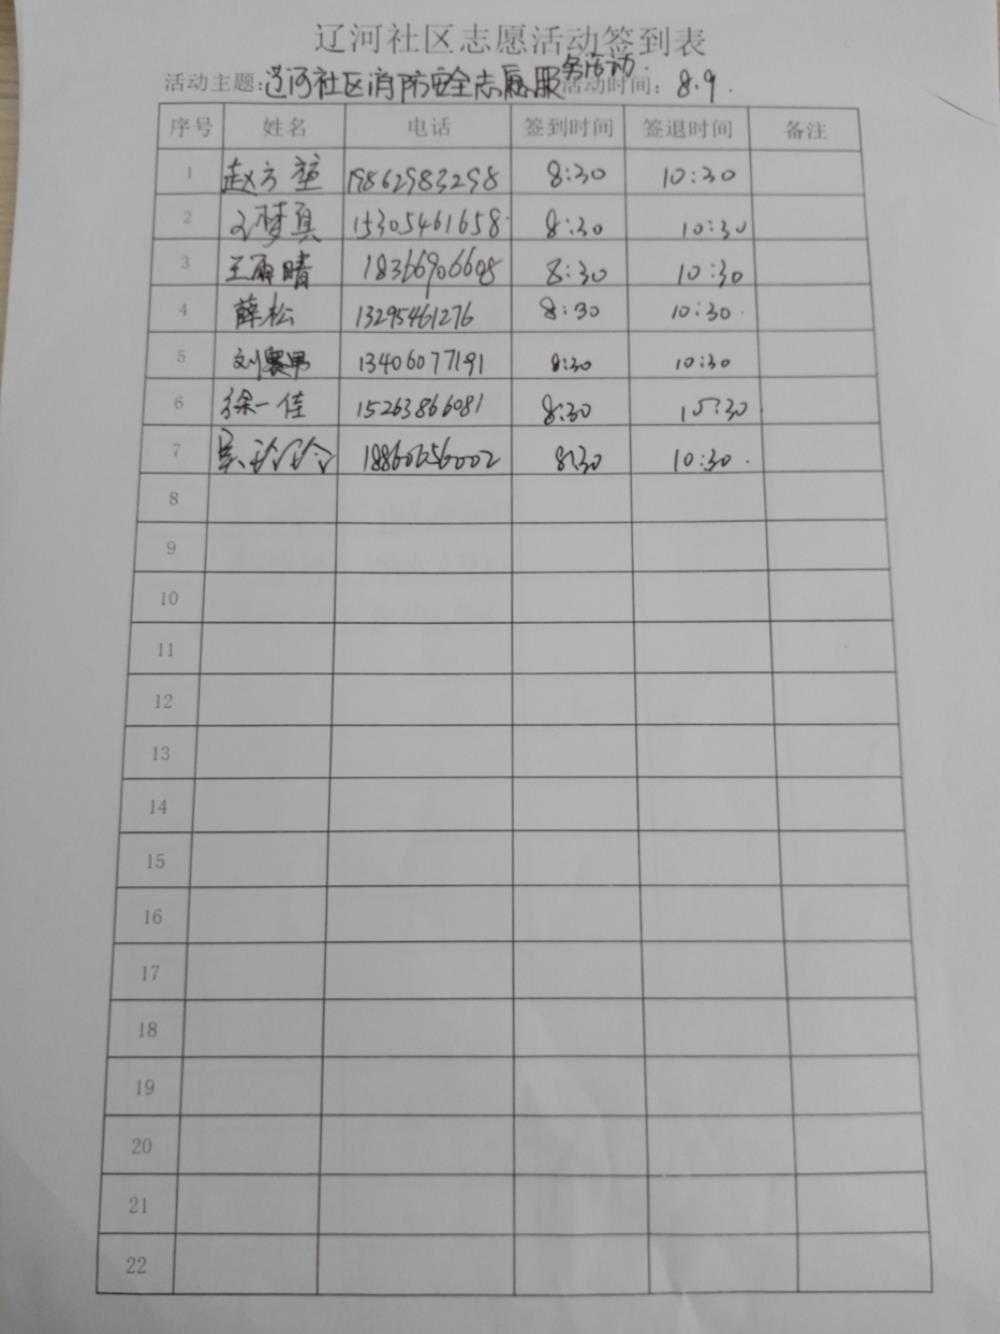 辽河社区志愿活动签到表
活动主题：辽河社区消防安全志愿服务活动. 活动时间：8.9.
序号 姓名 电话 签到时间 签退时间 备注
1 赵方堃 19862983298 8:30 10:30
2 梦真 15305461658 8:30 10:30
3 王雨晴 18366906608 8:30 10:30
4 薛松 13295461276 8:30 10:30
5 刘男 13406077191 8:30 10:30
6 徐一佳 15263866081 8:30 10:30
7 吴玲玲 18860656002 8:30 10:30
8
9
10
11
12
13
14
15
16
17
18
19
20
21
22